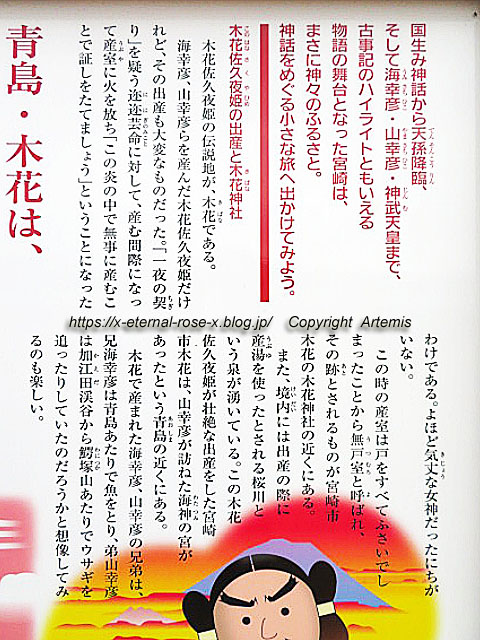 国生み神話から天孫降臨、
そして海幸彦・山幸彦・神武天皇まで、
古事記のハイライトともいえる
物語の舞台となった宮崎は、
まさに神々のふるさと。
神話をめぐる小さな旅へ出かけてみよう。
木花佐久夜姫の出産と木花神社
木花佐久夜姫の伝説地が、木花である。
海幸彦、山幸彦らを産んだ木花佐久夜姫だけ
れど、その出産も大変なものだった。「一夜の契
り」を疑う迩迩芸命に対して、産む間際になっ
て産室に火を放ち「この炎の中で無事に産むこ
とで証しをたてましょう」ということになった
わけである。よほど気丈な女神だったにちが
いない。
この時の産室は戸をすべてふさいでし
まったことから無戸室と呼ばれ、
その跡とされるものが宮崎市
木花の木花神社の近くにある。
また、境内には出産の際に
産湯を使ったとされる桜川と
いう泉が湧いている。この木花
佐久夜姫が壮絶な出産をした宮崎
市木花は、山幸彦が訪ねた海神の宮が
あったという青島の近くにある。
木花で産まれた海幸彦、山幸彦の兄弟は、
兄海幸彦は青島あたりで魚をとり、弟山幸彦
は加江田渓谷から鰐塚山あたりでウサギを
追ったりしていたのだろうかと想像してみ
るのも楽しい。
青島・木花は、
https://x-eternal-rose-x.blog.jp/ Copyright Artemis